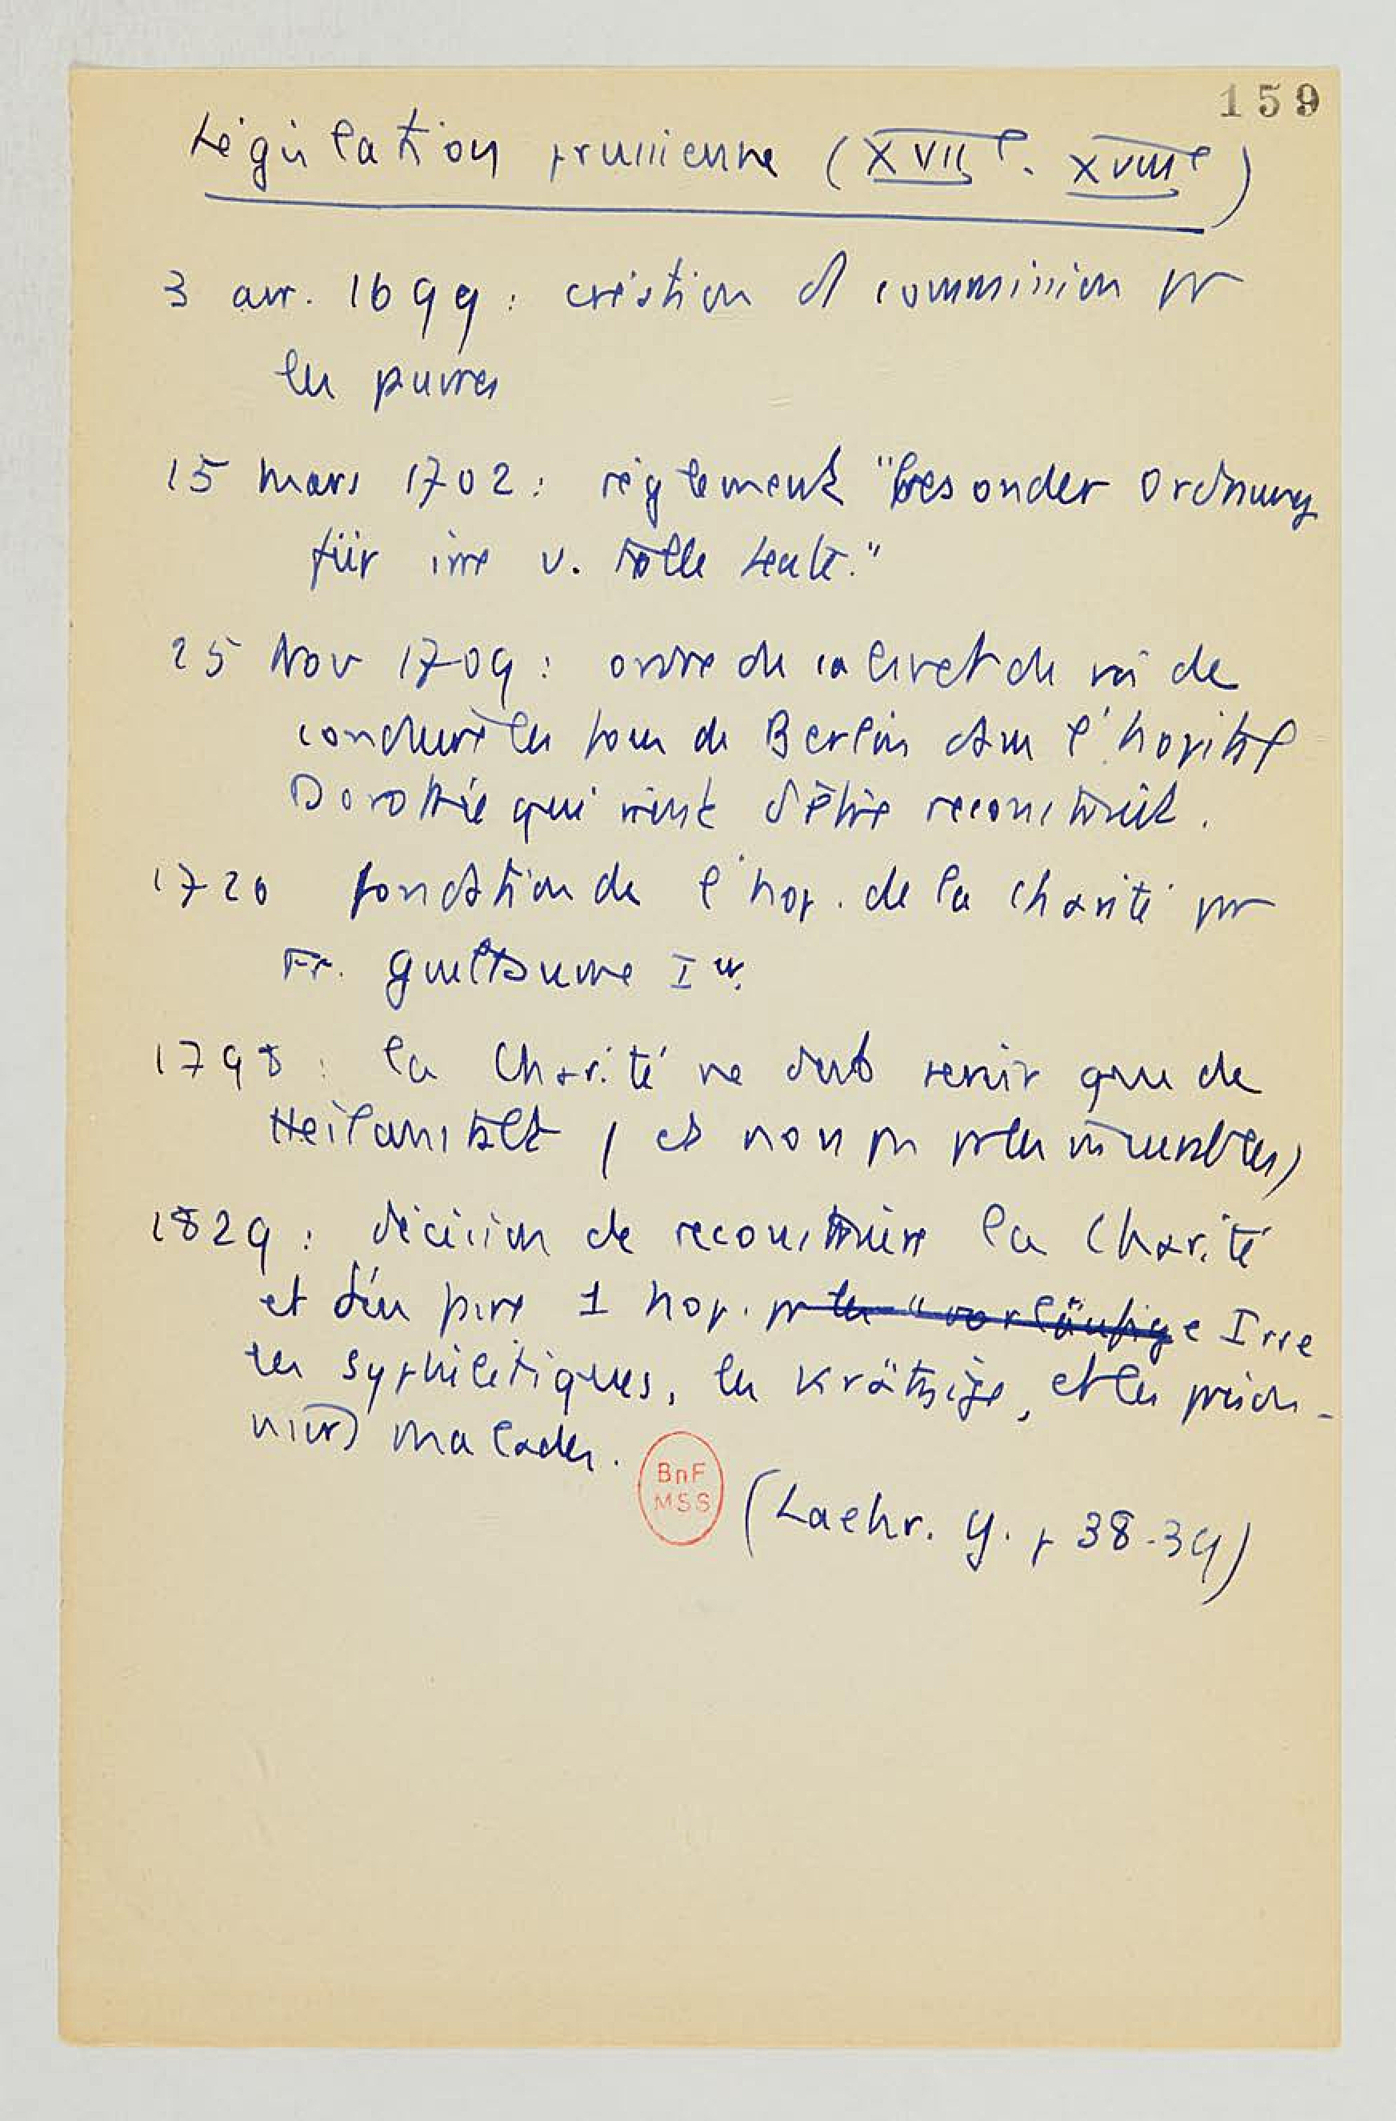 159
Législation prussienne (XVIIe. XVIIIe)
3 avr. 1699 : création d commission pr
les pauvres
15 mars 1702 : règlement "besonder Ordnung
für irre u. tolle Leute."
25 Nov 1709 : ordre du cabinet du roi de
conduire les fous de Berlin dans l'hopital
Dorothée qui vient d'être reconstruit.
1720 fondation de l'hop. de la Charité par
Fr. Guillaume Ier.
1798 : la Charité ne doit servir que de
Heilanstalt (et non pas pr les incurables)
1829 : décision de reconstruire la Charité
et d'en faire 1 hop. pr les "vorläufige Irre
les syphilitiques, les Krätzige, et les prison-
niers malades.
BnF
MSS
(Laehr. G. p 38-39)